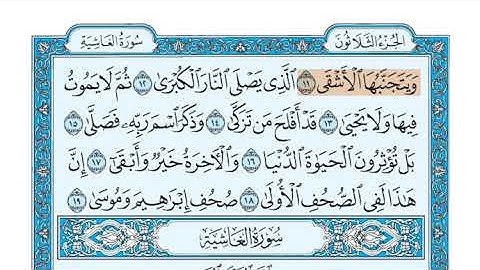 الجزء الثلاثون
سورة الغاشية
وَيَتَجَنَّبُهَا ٱلْأَشْقَى ١١ ٱلَّذِي يَصْلَى ٱلنَّارَ ٱلْكُبْرَىٰ ١٢ ثُمَّ لَا يَمُوتُ
فِيهَا وَلَا يَحْيَىٰ ١٣ قَدْ أَفْلَحَ مَن تَزَكَّىٰ ١٤ وَذَكَرَ ٱسْمَ رَبِّهِۦ فَصَلَّىٰ ١٥
بَلْ تُؤْثِرُونَ ٱلْحَيَوٰةَ ٱلدُّنْيَا ١٦ وَٱلْآخِرَةُ خَيْرٌ وَأَبْقَىٰٓ ١٧ إِنَّ
هَٰذَا لَفِي ٱلصُّحُفِ ٱلْأُولَىٰ ١٨ صُحُفِ إِبْرَٰهِيمَ وَمُوسَىٰ ١٩
سورة الغاشية